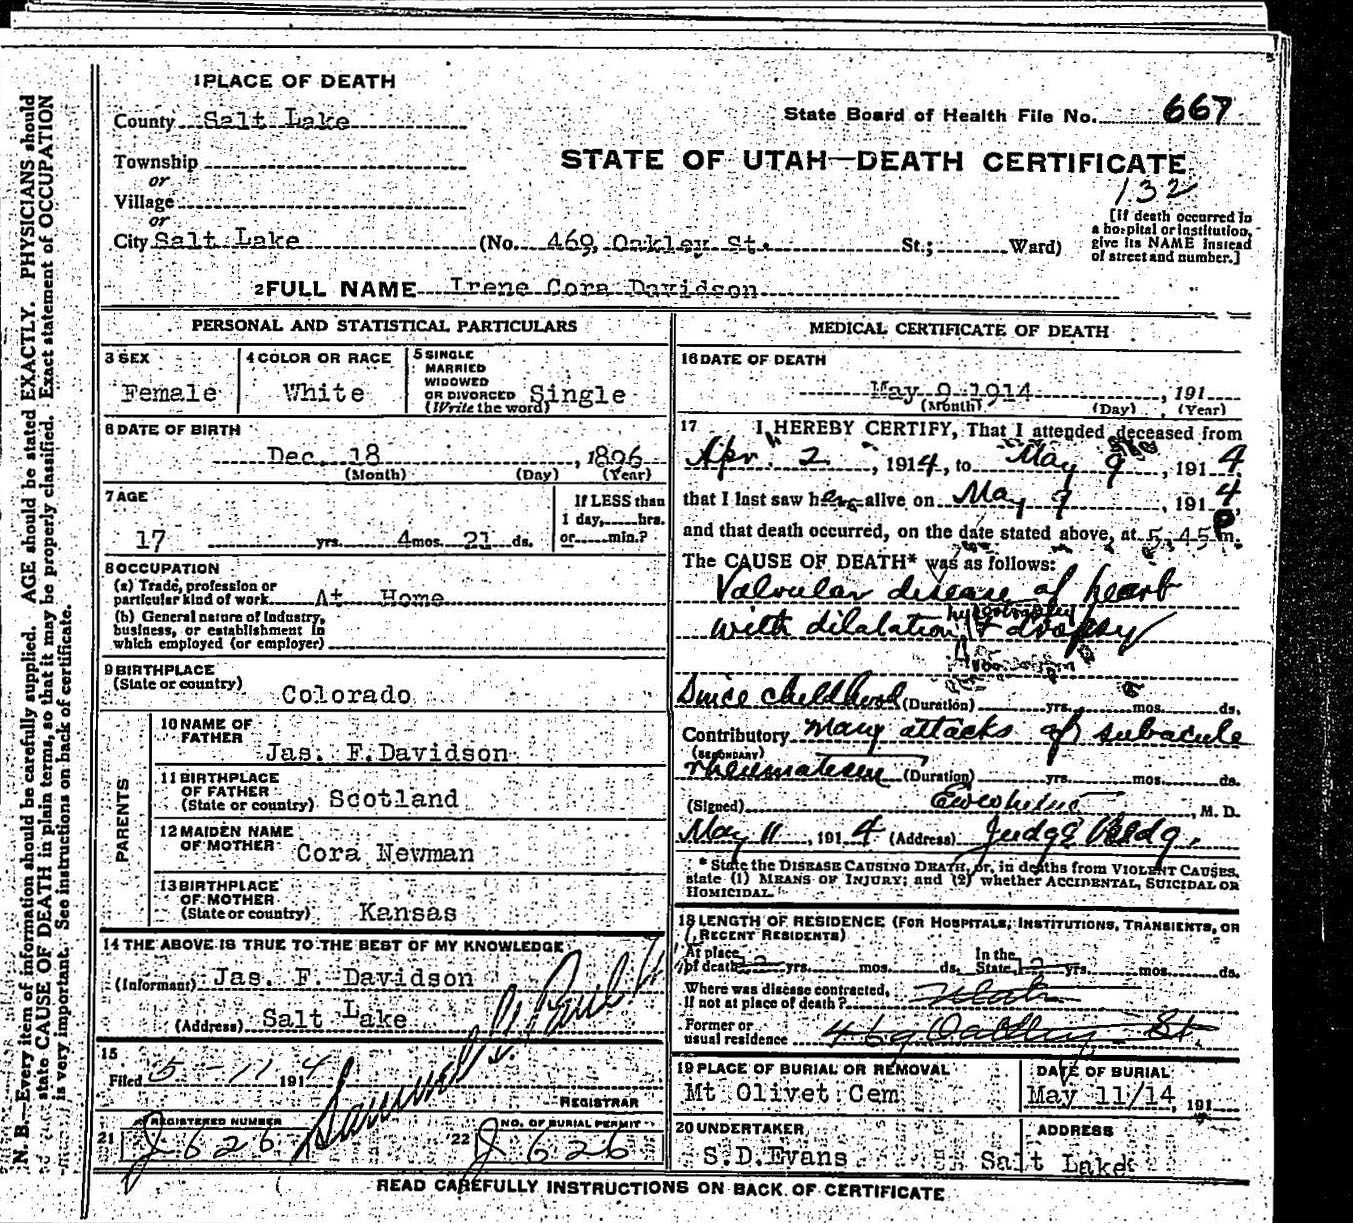 1 PLACE OF DEATH
County Salt Lake
State Board of Health File No. 667
Township
or
Village
or
STATE OF UTAH—DEATH CERTIFICATE
132
[If death occurred in
a hospital or institution,
give its NAME instead
of street and number.]
City Salt Lake (No. 469, Oakley St. St.; Ward)
2 FULL NAME Irene Cora Davidson
PERSONAL AND STATISTICAL PARTICULARS
3 SEX
Female
4 COLOR OR RACE
White
5 SINGLE
MARRIED
WIDOWED
OR DIVORCED Single
(Write the word)
6 DATE OF BIRTH
Dec. 18, 1896
(Month) (Day) (Year)
7 AGE
17 yrs. 4 mos. 21 ds.
If LESS than
1 day, hrs.
or min.?
8 OCCUPATION
(a) Trade, profession or
particular kind of work At Home
(b) General nature of Industry,
business, or establishment in
which employed (or employer)
9 BIRTHPLACE
(State or country) Colorado
PARENTS
10 NAME OF
FATHER Jas. F. Davidson
11 BIRTHPLACE
OF FATHER
(State or country) Scotland
12 MAIDEN NAME
OF MOTHER Cora Newman
13 BIRTHPLACE
OF MOTHER
(State or country) Kansas
14 THE ABOVE IS TRUE TO THE BEST OF MY KNOWLEDGE
(Informant) Jas. F. Davidson
(Address) Salt Lake
15
Filed 5-11 1914
Samuel G. Paul
REGISTRAR
21 REGISTERED NUMBER
J 626
22 NO. OF BURIAL PERMIT
J 626
MEDICAL CERTIFICATE OF DEATH
16 DATE OF DEATH
May 9 1914, 191
(Month) (Day) (Year)
17 I HEREBY CERTIFY, That I attended deceased from
Apr. 2, 1914, to May 9, 1914
that I last saw her alive on May 9, 1914
and that death occurred, on the date stated above, at 5.45 P m.
The CAUSE OF DEATH* was as follows:
Valvular disease of heart
with dilatation & dropsy
Since childhood (Duration) yrs. mos. ds.
Contributory Many attacks of subacute
(SECONDARY)
rheumatism (Duration) yrs. mos. ds.
(Signed) , M. D.
May 11, 1914 (Address) Judge Bldg.
* State the DISEASE CAUSING DEATH, or, in deaths from VIOLENT CAUSES,
state (1) MEANS OF INJURY; and (2) whether ACCIDENTAL, SUICIDAL OR
HOMICIDAL.
18 LENGTH OF RESIDENCE (FOR HOSPITALS, INSTITUTIONS, TRANSIENTS, OR
RECENT RESIDENTS)
At place
of death yrs. mos. ds. In the
State yrs. mos. ds.
Where was disease contracted,
if not at place of death? Utah
Former or
usual residence 469 Oakley St.
19 PLACE OF BURIAL OR REMOVAL
Mt Olivet Cem
DATE OF BURIAL
May 11/14, 191
20 UNDERTAKER
S.D.Evans
ADDRESS
Salt Lake
READ CAREFULLY INSTRUCTIONS ON BACK OF CERTIFICATE
N. B.—Every item of information should be carefully supplied. AGE should be stated EXACTLY. PHYSICIANS should
state CAUSE OF DEATH in plain terms, so that it may be properly classified. Exact statement of OCCUPATION
is very important. See instructions on back of certificate.